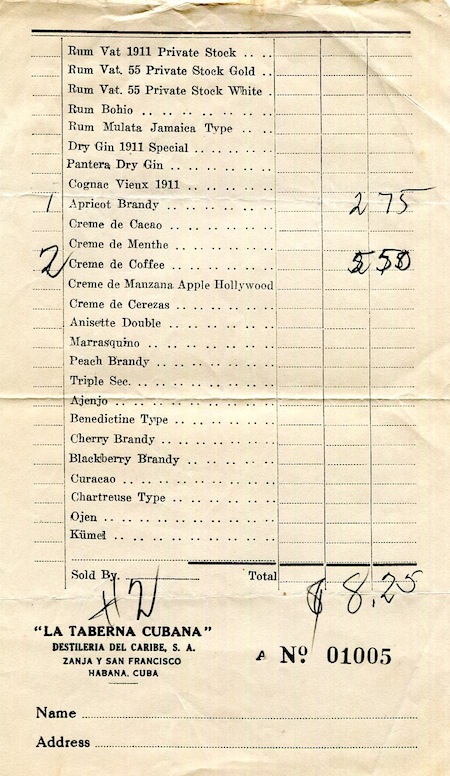 Rum Vat 1911 Private Stock ..
Rum Vat. 55 Private Stock Gold ..
Rum Vat. 55 Private Stock White .
Rum Bohio .. .. .. .. .. .. ..
Rum Mulata Jamaica Type .. ..
Dry Gin 1911 Special .. .. .. ..
Pantera Dry Gin .. .. .. .. ..
Cognac Vieux 1911 .. .. .. .. ..
1 Apricot Brandy .. .. .. .. .. .. 2 75
Creme de Cacao .. .. .. .. ..
Creme de Menthe .. .. .. .. ..
2 Creme de Coffee .. .. .. .. .. 5 50
Creme de Manzana Apple Hollywood
Creme de Cerezas .. .. .. .. ..
Anisette Double .. .. .. .. .. ..
Marrasquino .. .. .. .. .. .. ..
Peach Brandy .. .. .. .. .. ..
Triple Sec. .. .. .. .. .. .. ..
Ajenjo .. .. .. .. .. .. .. ..
Benedictine Type .. .. .. .. ..
Cherry Brandy .. .. .. .. .. ..
Blackberry Brandy .. .. .. .. ..
Curacao .. .. .. .. .. .. .. ..
Chartreuse Type .. .. .. .. ..
Ojen .. .. .. .. .. .. .. .. ..
Kümel .. .. .. .. .. .. .. ..
Sold By. Total $ 8.25
#2
"LA TABERNA CUBANA"
DESTILERIA DEL CARIBE, S. A.
ZANJA Y SAN FRANCISCO
HABANA, CUBA
A Nº 01005
Name
Address